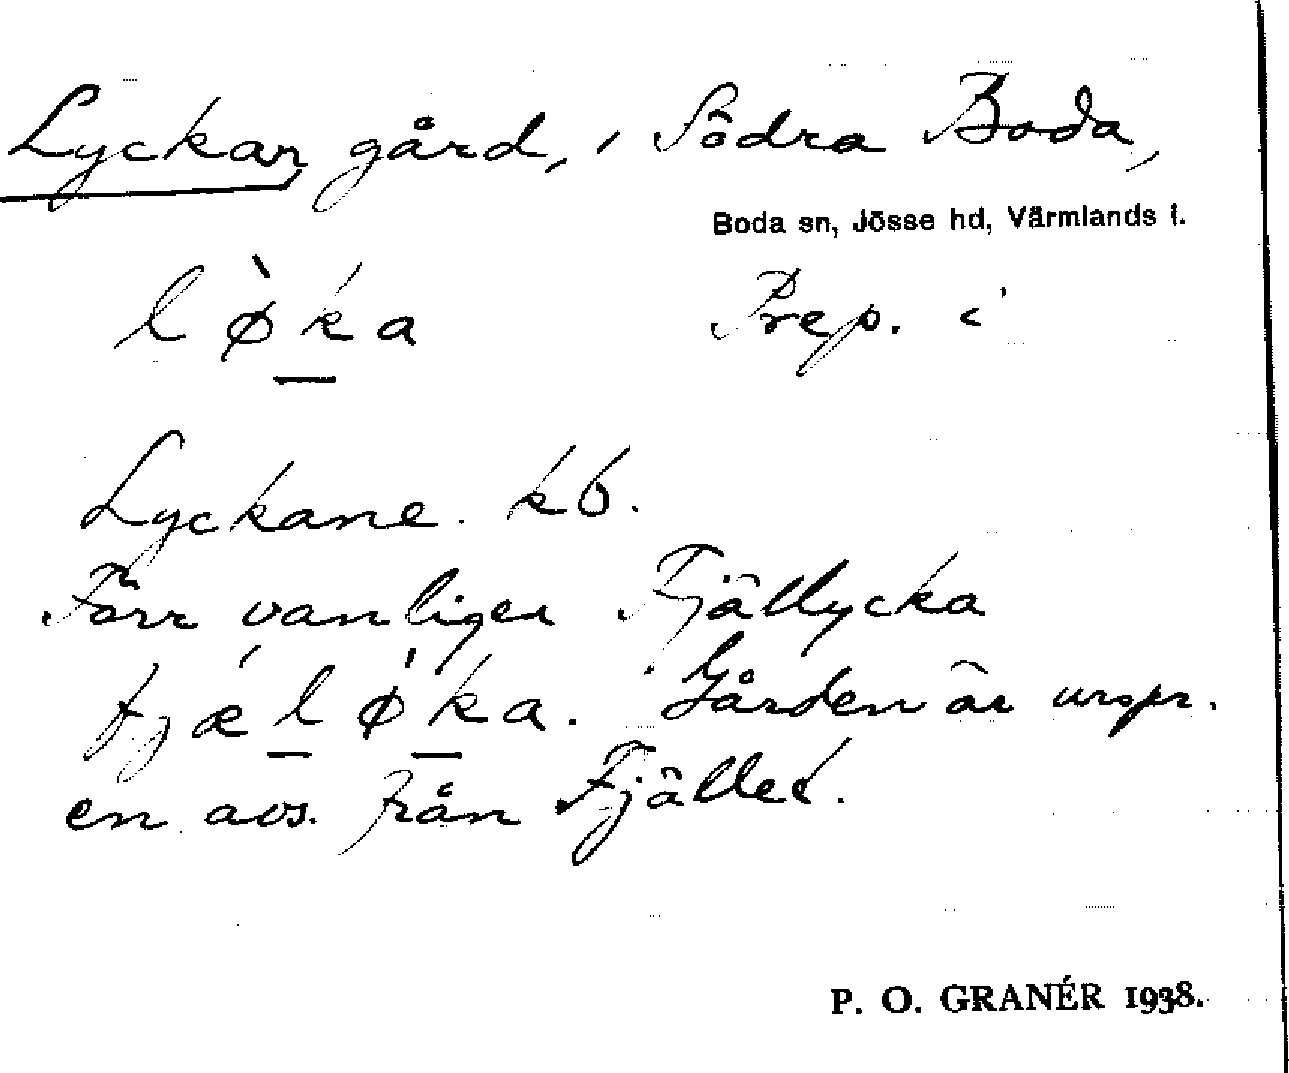 Lyckan gård, i Södra Boda,
Boda sn, Jösse hd, Värmlands l.
lø̀ka Prep. i
Lyckane. kb.
Förr vanligen Fjällycka
fjæ̀lø̀ka. Gården är urspr.
en avs. från Fjället.
P. O. GRANÉR 1938.